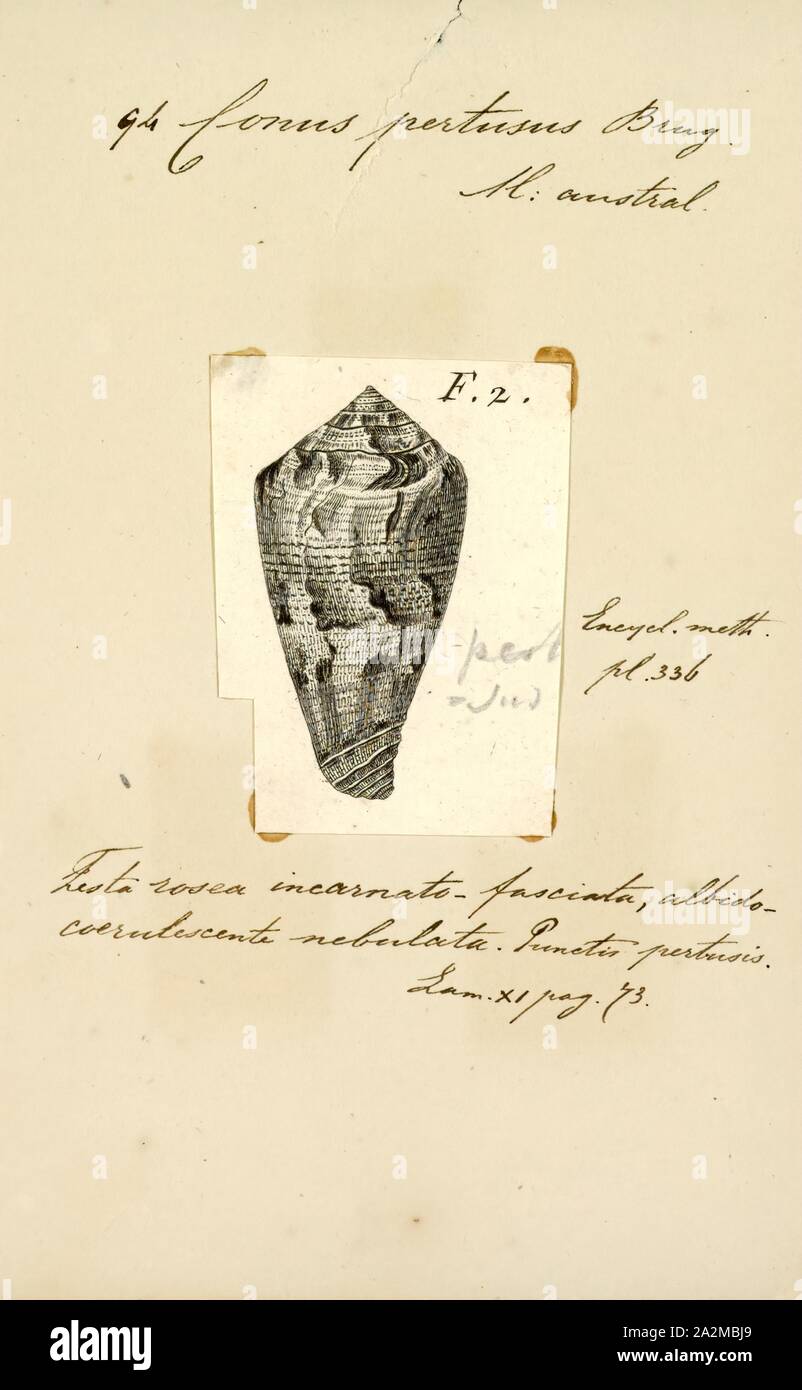 94 Conus pertusus Brug.
M: austral.
F. 2.
Encycl. meth.
pl. 336
Testa rosea incarnato-fasciata, albido-
coerulescente nebulata. Punctis pertusis.
Lam. XI pag. 73.
alamy
Image ID: A2MBJ9
www.alamy.com